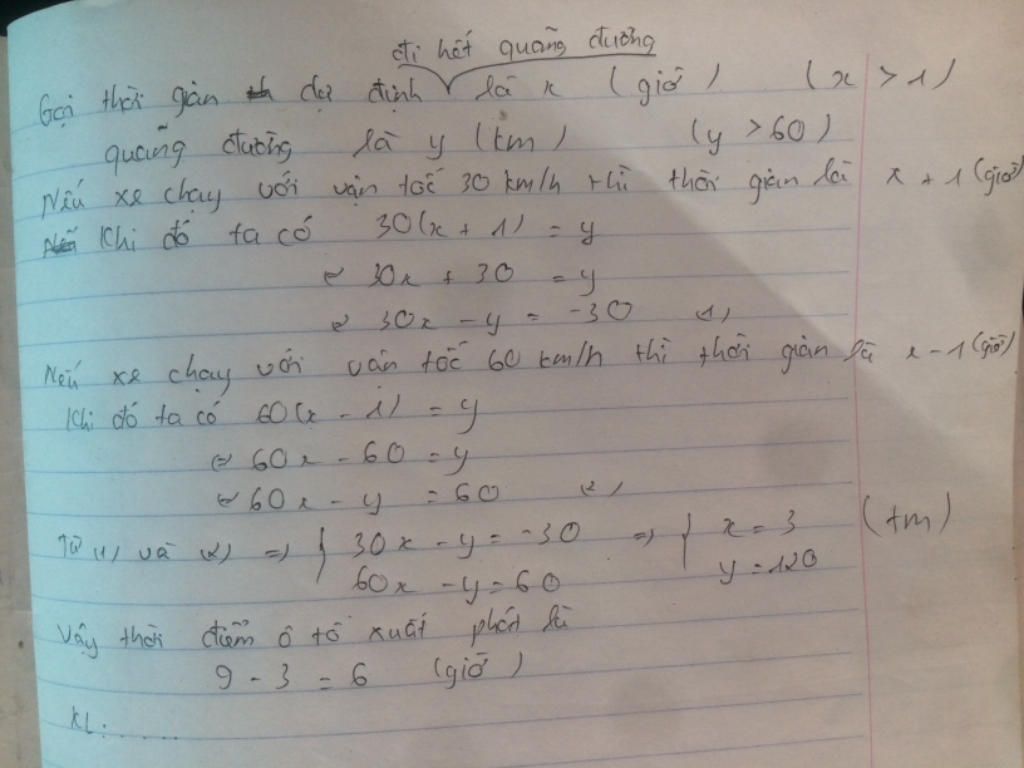 đi hết quãng đường
Gọi thời gian dự định là x (giờ) (x > 1)
quãng đường là y (km) (y > 60)
Nếu xe chạy với vận tốc 30 km/h thì thời gian là x + 1 (giờ)
Khi đó ta có 30(x + 1) = y
⇔ 30x + 30 = y
⇔ 30x - y = -30 (1)
Nếu xe chạy với vận tốc 60 km/h thì thời gian là x - 1 (giờ)
Khi đó ta có 60(x - 1) = y
⇔ 60x - 60 = y
⇔ 60x - y = 60 (2)
Từ (1) và (2) => { 30x - y = -30 => { x = 3 (tm)
60x - y = 60 y = 120
Vậy thời điểm ô tô xuất phát là
9 - 3 = 6 (giờ)
KL: ......